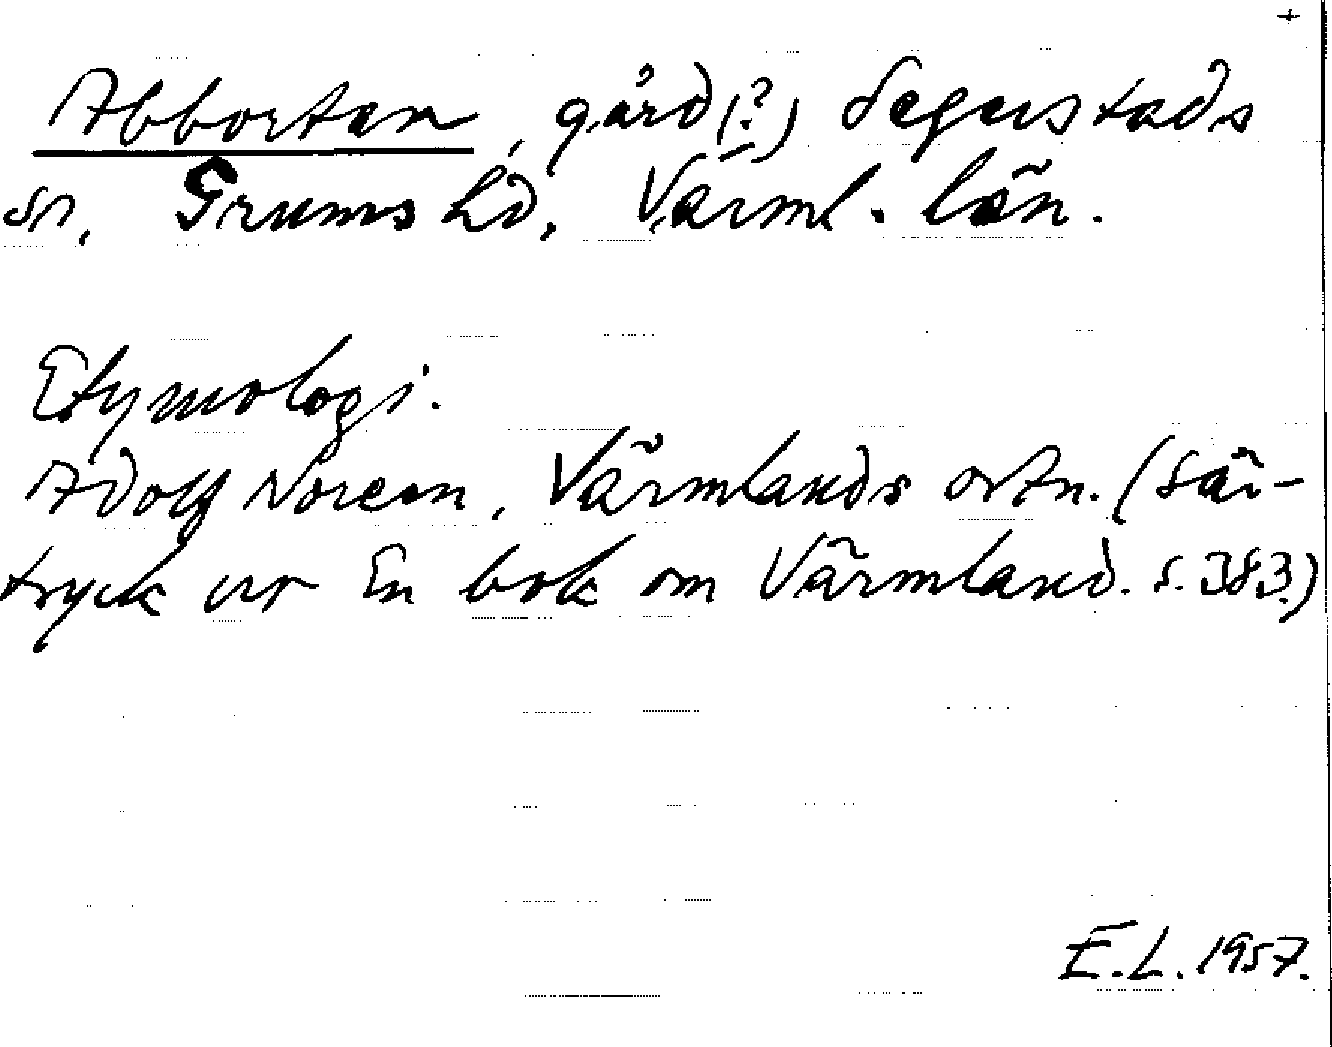 +
Abbortan, gård(?) Segerstads
sn, Grums hd, Värml. län.
Etymologi.
Adolf Noreen, Värmlands ortn. (Sär-
tryck ur En bok om Värmland. s. 383.)
E.L. 1957.